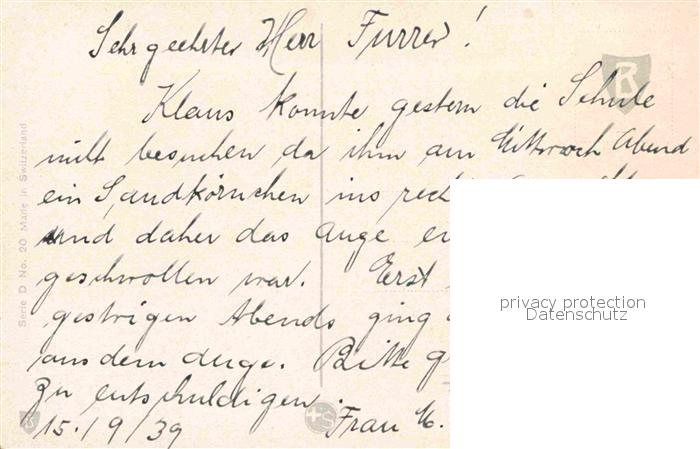 Sehr geehrter Herr Furrer!
Klaus konnte gestern die Schule
nicht besuchen da ihm am Mittwoch Abend
ein Sandkörnchen ins
und daher das Auge
geschwollen war. Erst
gestrigen Abends ging
aus dem Auge. Bitte
zu entschuldigen.
15. / 9 / 39 Frau
privacy protection
Datenschutz
Serie D No. 20 Made in Switzerland